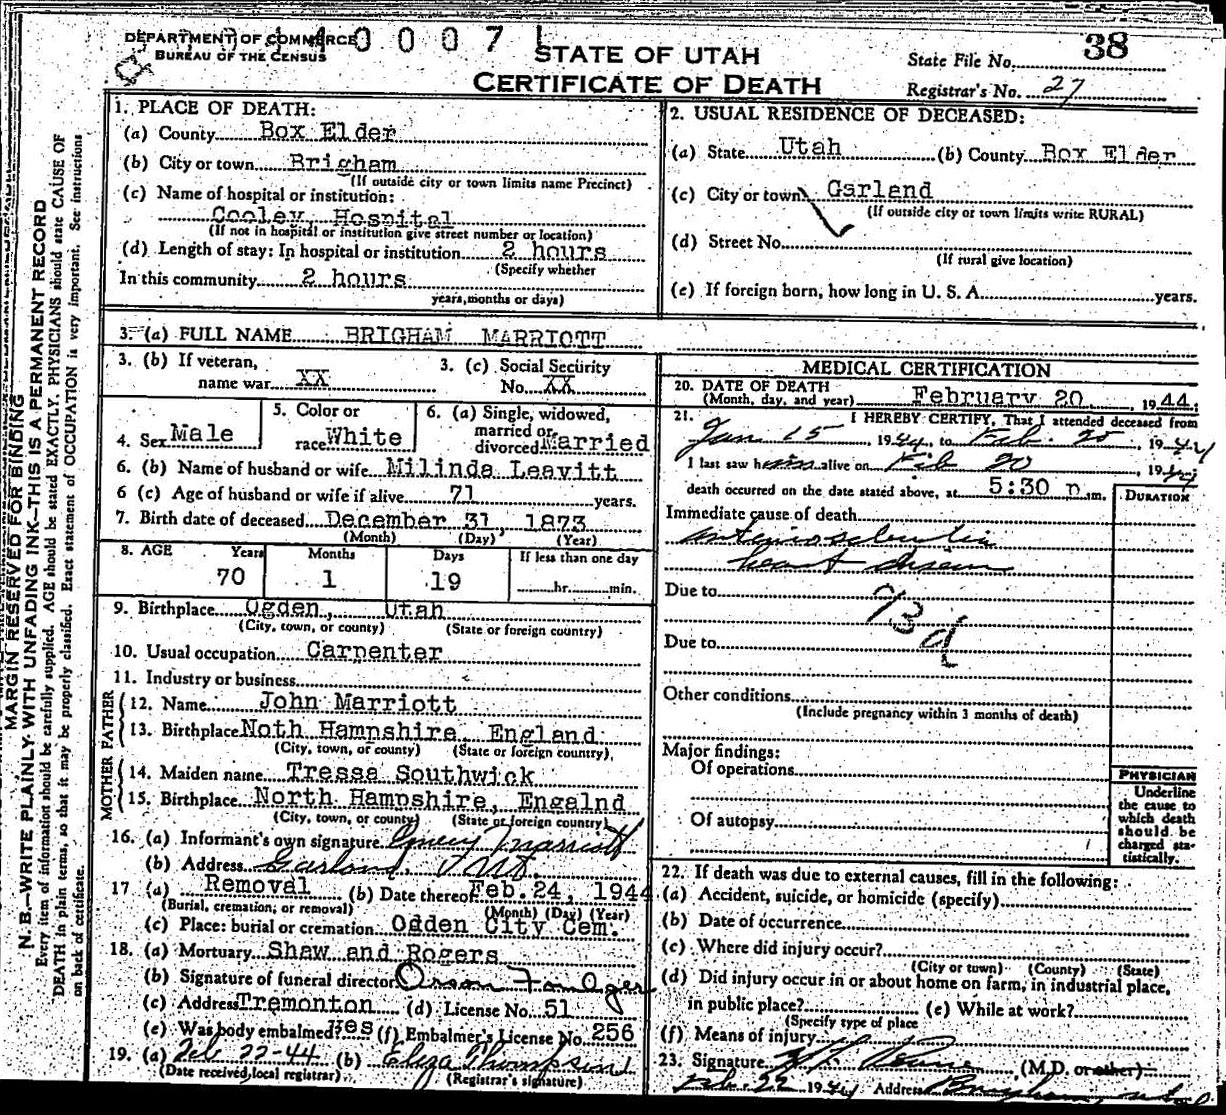 DEPARTMENT OF COMMERCE
BUREAU OF THE CENSUS
0 0 0 7 1
STATE OF UTAH
CERTIFICATE OF DEATH
State File No. 38
Registrar's No. 27
MARGIN RESERVED FOR BINDING
N. B.—WRITE PLAINLY WITH UNFADING INK—THIS IS A PERMANENT RECORD
Every item of information should be carefully supplied. AGE should be stated EXACTLY. PHYSICIANS should state CAUSE OF
DEATH in plain terms, so that it may be properly classified. Exact statement of OCCUPATION is very important. See instructions
on back of certificate.
1. PLACE OF DEATH:
(a) County Box Elder
(b) City or town Brigham
(If outside city or town limits name Precinct)
(c) Name of hospital or institution:
Cooley Hospital
(If not in hospital or institution give street number or location)
(d) Length of stay: In hospital or institution 2 hours
(Specify whether
In this community 2 hours
years, months or days)
2. USUAL RESIDENCE OF DECEASED:
(a) State Utah (b) County Box Elder
(c) City or town Garland
(If outside city or town limits write RURAL)
(d) Street No.
(If rural give location)
(e) If foreign born, how long in U. S. A. years.
3. (a) FULL NAME BRIGHAM MARRIOTT
3. (b) If veteran,
name war XX
3. (c) Social Security
No. XX
4. Sex Male
5. Color or
race White
6. (a) Single, widowed,
married or
divorced Married
6. (b) Name of husband or wife Milinda Leavitt
6 (c) Age of husband or wife if alive 71 years.
7. Birth date of deceased December 31, 1873
(Month) (Day) (Year)
8. AGE Years Months Days If less than one day
70 1 19 hr. min.
9. Birthplace Ogden, Utah
(City, town, or county) (State or foreign country)
10. Usual occupation Carpenter
11. Industry or business
FATHER
12. Name John Marriott
13. Birthplace Noth Hampshire, England
(City, town, or county) (State or foreign country)
MOTHER
14. Maiden name Tressa Southwick
15. Birthplace North Hampshire, Engalnd
(City, town, or county) (State or foreign country)
16. (a) Informant's own signature Marriott
(b) Address Garland, Utah.
17 (a) Removal (b) Date thereof Feb.24, 1944
(Burial, cremation, or removal) (Month) (Day) (Year)
(c) Place: burial or cremation Ogden City Cem.
18. (a) Mortuary Shaw and Rogers
(b) Signature of funeral director
(c) Address Tremonton (d) License No. 51
(e) Was body embalmed? yes (f) Embalmer's License No. 256
19. (a) Feb 22-44 (b) Eliza Thompson
(Date received local registrar) (Registrar's signature)
MEDICAL CERTIFICATION
20. DATE OF DEATH
(Month, day, and year) February 20, 1944
21. I HEREBY CERTIFY, That I attended deceased from
Jan 15, 1944, to Feb. 20, 1944
I last saw him alive on Feb 20, 1944
death occurred on the date stated above, at 5:30 p.m.
DURATION
Immediate cause of death
arteriosclerotic
heart disease
Due to
93d
Due to
Other conditions
(Include pregnancy within 3 months of death)
Major findings:
Of operations
Of autopsy
PHYSICIAN
Underline
the cause to
which death
should be
charged sta-
tistically.
22. If death was due to external causes, fill in the following:
(a) Accident, suicide, or homicide (specify)
(b) Date of occurrence
(c) Where did injury occur?
(City or town) (County) (State)
(d) Did injury occur in or about home on farm, in industrial place,
in public place? (e) While at work?
(Specify type of place
(f) Means of injury
23. Signature (M.D. or other)
Feb. 22 1944 Address Brigham